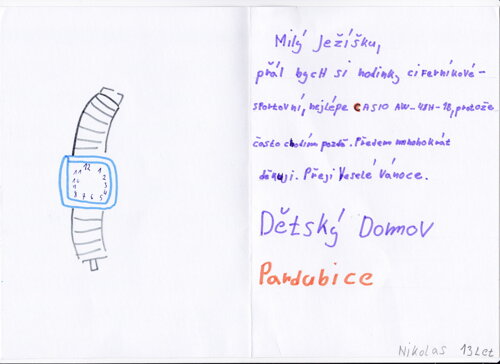 12
11 1
10 2
9 3
8 4
7 6 5
Milý Ježíšku,
přál bycH si hodinky ciFerníkové-
sportovní, nejlépe CASIO AW-48H-1B, protože
často chodím pozdě. Předem mnohokrát
děkuji. Přeji Veselé Vánoce.
Dětský Domov
Pardubice
Nikolas 13 Let